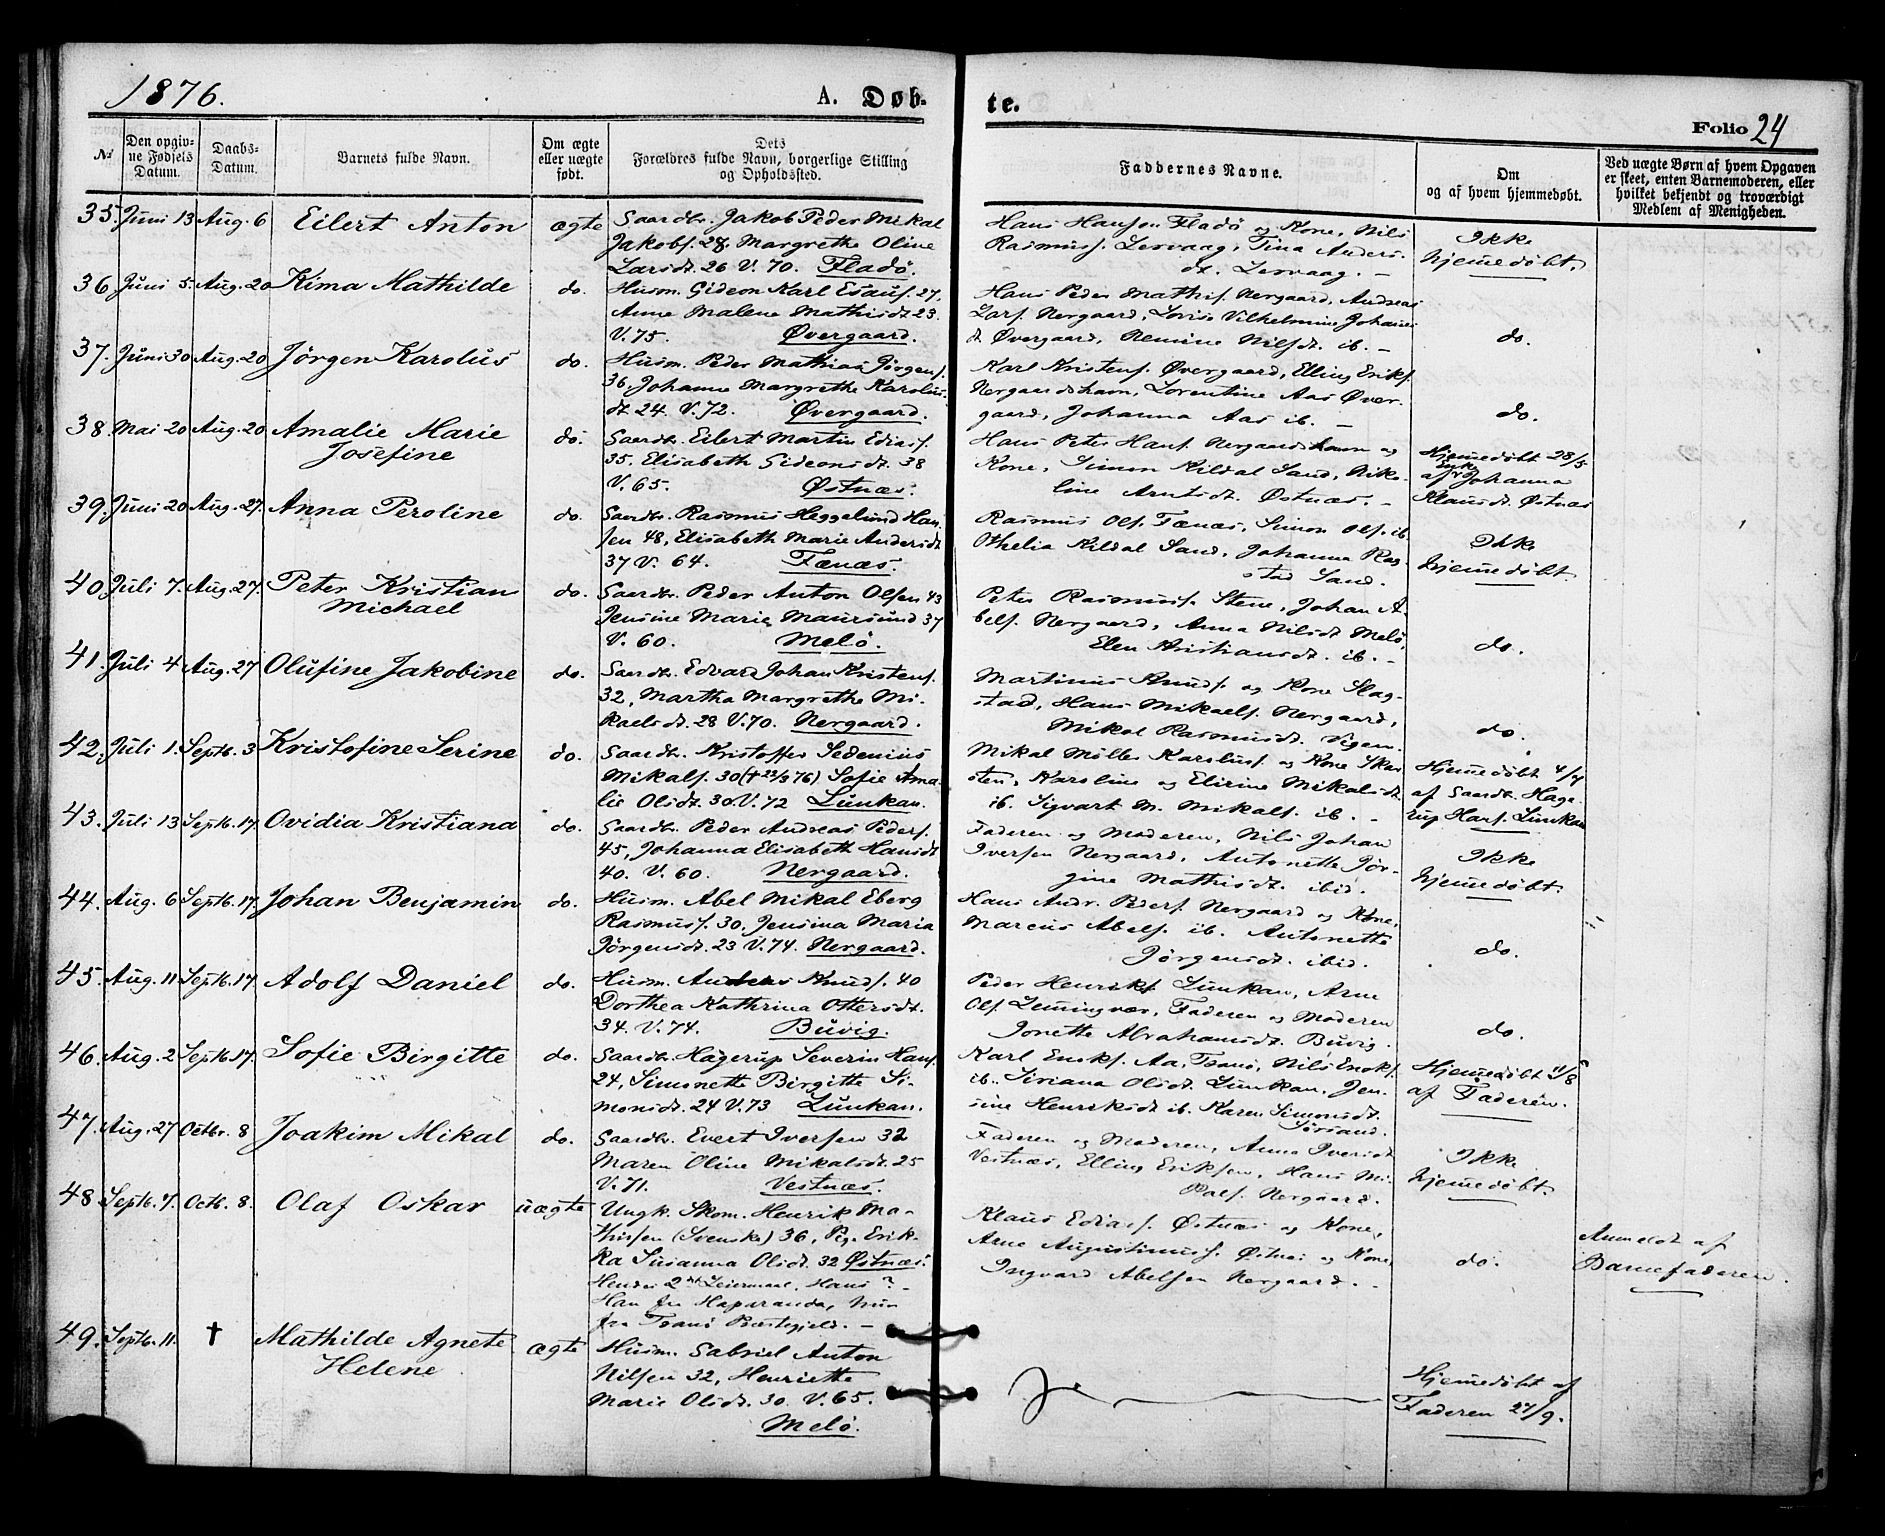 1876.
A. Døb-
te.
Folio 24
№
Den opgiv-
ne Fødsels
Datum.
Daabs-
Datum.
Barnets fulde Navn.
Om ægte
eller uægte
født.
Dets
Forældres fulde Navn, borgerlige Stilling
og Opholdssted.
Faddernes Navne.
Om
og af hvem hjemmedøbt.
Ved uægte Børn af hvem Opgaven
er skeet, enten Barnemoderen, eller
hvilket bekjendt og troværdigt
Medlem af Menigheden.
35. Juni 13 Aug. 6 Eilert Anton ægte
Gaardbr. Jakob Peder Mikal
Jakobs. 28, Margrethe Oline
Larsdt. 26 V. 70. Fladö.
Hans Hansen Fladö og Kone, Nils
Rasmuss. Lervaag, Tina Anders-
dt. Lervaag. –
Ikke
hjemedøbt.
36. Juni 5. Aug. 20 Kima Mathilde do.
Husm. Gideon Karl Esaus. 27,
Anne Malene Mathisdt. 23.
V. 75. Øvergaard.
Hans Peder Mathis. Nergaard, Andreas
Lars. Nergaard, Lovise Vilhelmine Johans
dt Øvergaard, Nemine Nilsdt. ib. –
do.
37. Juni 30 Aug. 20 Jørgen Karolus do.
Husm. Peder Mathias Jørgens.
36, Johanna Margrethe Karolus-
dt. 24. V. 72. Øvergaard.
Karl Kristens. Øvergaard, Elling Eriks.
Nergaardshavn, Lorentine Aas Øver-
gaard, Johanna Aas ib. –
do.
38. Mai 20 Aug. 20 Amalie Marie do.
Josefine
Gaardbr. Eilert Martin Edias.
35. Elisabeth Gideonsdt. 38
V. 65. Østnæs.
Hans Peter Hans. Nergaardshavn og
Kone, Simon Kildal Sand, Rike-
line Arntsdt. Østnæs. –
Hjemedøbt 28/5
af Enke Johanna
Klausdt. Østnæs
39. Juni 20 Aug. 27. Anna Peroline do.
Gaardbr. Rasmus Heggelund Han-
sen 48, Elisabeth Marie Andersdt
37 V. 64. Fænæs.
Rasmus Ols. Fænæs, Simon Ols. ib.
Othelia Kildal Sand, Johanna Ras-
stad Sand.
Ikke
hjemedøbt
40. Juli 7. Aug. 27. Peter Kristian do.
Michael
Gaardbr. Peder Anton Olsen 43
Jensine Marie Maursund 37
V. 60. Melö.
Peter Rasmuss. Stene, Johan A-
bels. Nergaard, Anna Nilsdt Melö,
Elen Kristiansdt. ib. –
do.
41. Juli 4 Aug. 27 Olufine Jakobine do.
Gaardbr. Edvard Johan Kristens.
32, Martha Margrethe Mi-
kaelsdt. 28 V. 70. Nergaard.
Martinus Knuds. og Kone Slag-
stad, Hans Mikaels. Nergaard,
Mikol Rasmusdt. Vigen.
do.
42. Juli 1. Septb. 3 Kristofine Serine do.
Gaardbr. Kristoffer Sedenius
Mikals. 30 (+ 23/3 76) Sofie Ama-
lie Olsdt. 30. V. 72 Lunkan.
Mikal Möller Karolus. og Kone Skar-
sten, Karoline og Elirine Mikalsdt
ib. Sigvart M. Mikals. ib. –
Hjemedøbt 4/7
af Gaardbr. Hage-
rup Hans. Lunkan
43. Juli 13 Septb. 17. Ovidia Kristiana do.
Gaardbr. Peder Andreas Peders.
45, Johanna Elisabeth Hansdt
40. V. 60. Nergaard.
Faderen og Moderen, Nils Johan
Iversen Nergaard, Antonette Jör-
gine Mathisdt. ibid.
Ikke
hjemedøbt.
44. Aug. 6 Septb. 17. Johan Benjamin do.
Husm. Abel Mikal Eberg
Rasmuss. 30, Jensina Maria
Jörgensdt. 23 V. 74. Nergaard.
Hans Andr. Peders. Nergaard og Kone,
Marcus Abels. ib. Antonette
Jörgensdt. ibid.
do.
45. Aug. 11 Septb. 17. Adolf Daniel do.
Husm. Andreas Knuds. 40
Dorthea Kathrina Ottersdt.
34. V. 74. Buvig.
Peder Henriks. Lunkan, Arne
Ols. Lemingvær, Faderen og Moderen
Jonette Abrahamsdt. Buvig.
do.
46. Aug. 2 Septb. 17. Sofie Birgitte do.
Gaardbr. Hagerup Severin Hans.
24, Simonette Birgitte Si-
monsdt. 24 V. 73 Lunkan.
Karl Enoks. Aa, Tranö, Nils Enoks.
ib.. Siriana Olsdt. Lunkan, Jen-
sine Henriksdt ib. Karen Simonsdt.
Sörsand.
Hjemedøbt 11/8
af Faderen.
47. Aug. 27 Octbr. 8 Joakim Mikal do.
Gaardbr. Evert Iversen 32
Maren Oline Mikalsdt. 25
V. 71. Vestnæs.
Faderen og Moderen, Anna Iversdt
Vestnæs, Elling Eriksen, Hans Mi-
kals. Nergaard.
Ikke
hjemedøbt.
48 Septb. 7. Octb. 8. Olaf Oskar uægte
Ungk. Skom. Henrik Ma-
thisen (Svenske) 36, Pig. Erik-
ka Susanna Olsdt. 32 Østnæs.
Hendes 2det Leiermaal, Hans ? –
Han fra Haparanda, hun
fra Tranö Præstegjeld. –
Klaus Edias. Østnæs og Kone,
Arne Augustinuss. Østnæs og Kone,
Ingvard Abelsen Nergaard. –
do.
Anmeldt af
Barnefaderen.
49. Septbr. 11. † Mathilde Agnete ægte
Helene
Husm. Gabriel Anton
Nilsen 32, Henriette
Marie Olsdt. 30 V. 65.
Melö.
Hjemedøbt af
Faderen 27/9.